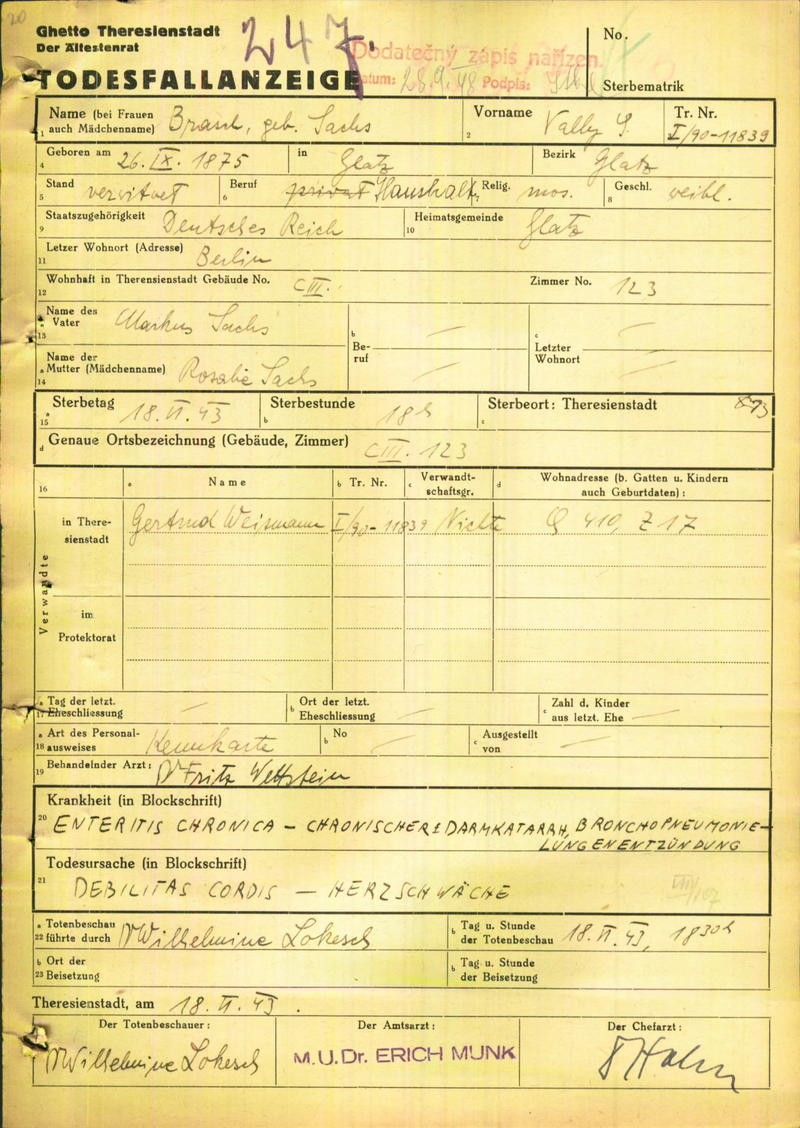 20
Ghetto Theresienstadt
Der Ältestenrat
247.
Dodatečný zápis nařízen.
Datum: 28.9.48 Podpis:
No.
TODESFALLANZEIGE
Sterbematrik
Name (bei Frauen auch Mädchenname) Brasch, geb. Sachs
1
Vorname Vally S.
2
Tr. Nr. I/90-11839
Geboren am 26. IX. 1875 in Glatz Bezirk Glatz
4
Stand verwitwet Beruf privat Haushalt Relig. mos. Geschl. weibl.
5 6 7 8
Staatszugehörigkeit Deutsches Reich Heimatsgemeinde Glatz
9 10
Letzer Wohnort (Adresse) Berlin
11
Wohnhaft in Theresienstadt Gebäude No. C III. Zimmer No. 123
12
a Name des Vater Markus Sachs
13
a Name der Mutter (Mädchenname) Rosalie Sachs
14
b Beruf — —
c Letzter Wohnort — —
a Sterbetag 18. VI. 43 b Sterbestunde 18h c Sterbeort: Theresienstadt
15
d Genaue Ortsbezeichnung (Gebäude, Zimmer) C III. 123
16 a Name b Tr. Nr. c Verwandtschaftsgr. d Wohnadresse (b. Gatten u. Kindern auch Geburtdaten):
Verwandte
in Theresienstadt Gertrud Weismann I/90-11839 Nichte Q 410, Z 17
im Protektorat
a Tag der letzt. Eheschliessung — b Ort der letzt. Eheschliessung — c Zahl d. Kinder aus letzt. Ehe —
17
a Art des Personalausweises Kennkarte b No — c Ausgestellt von —
18
Behandelnder Arzt: Dr Fritz Wettstein
19
Krankheit (in Blockschrift)
20 ENTERITIS CHRONICA – CHRONISCHER DARMKATARRH, BRONCHOPNEUMONIE–
LUNGENENTZÜNDUNG
Todesursache (in Blockschrift)
21 DEBILITAS CORDIS – HERZSCHWÄCHE
a Totenbeschau führte durch Dr Wilhelmine Lokesch b Tag u. Stunde der Totenbeschau 18. VI. 43, 18 30h
22
b Ort der Beisetzung b Tag u. Stunde der Beisetzung
23
Theresienstadt, am 18. VI. 43.
Der Totenbeschauer: Der Amtsarzt: Der Chefarzt:
Dr Wilhelmine Lokesch M.U.Dr. ERICH MUNK